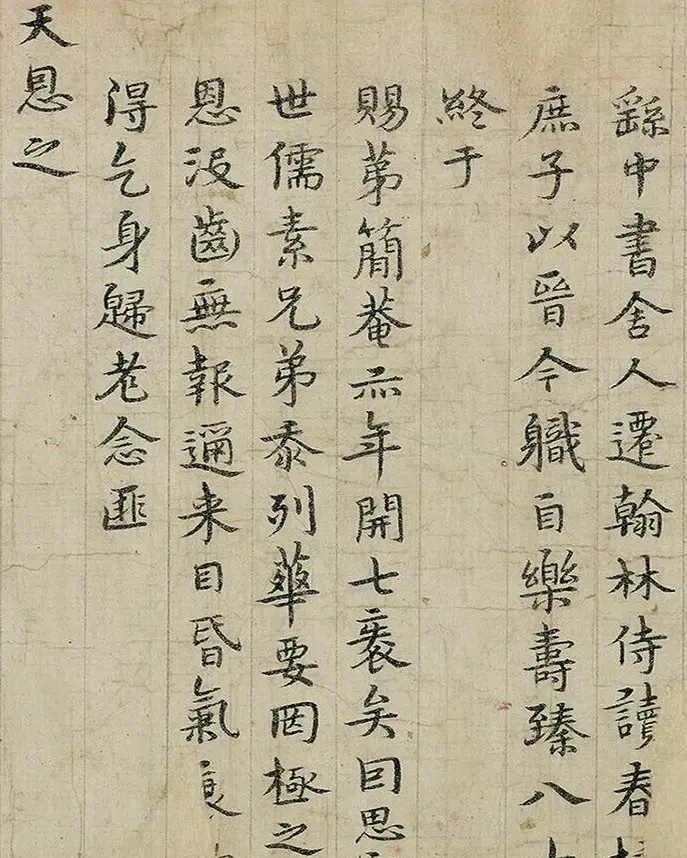 繇中書舍人遷翰林侍讀春
庶子以晉今軄自樂壽臻八
終于
賜苐簡菴亦年開七袠矣回思
世儒素兄弟忝列華要罔極之
恩沒齒無報邇来目昏氣衰
得乞身歸老念匪
天恩之